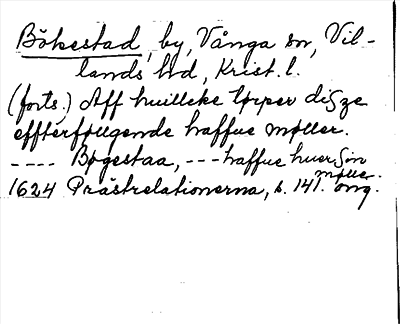 Bökestad, by, Vånga sn, Vil-
lands hd, Krist. l.
(forts.) Aff huilleke torper disze
effterføllgende haffue møller.
---- Bøgestaa, --- haffue huer sin
møller.
1624 Prästrelationerna, s. 141. omg.